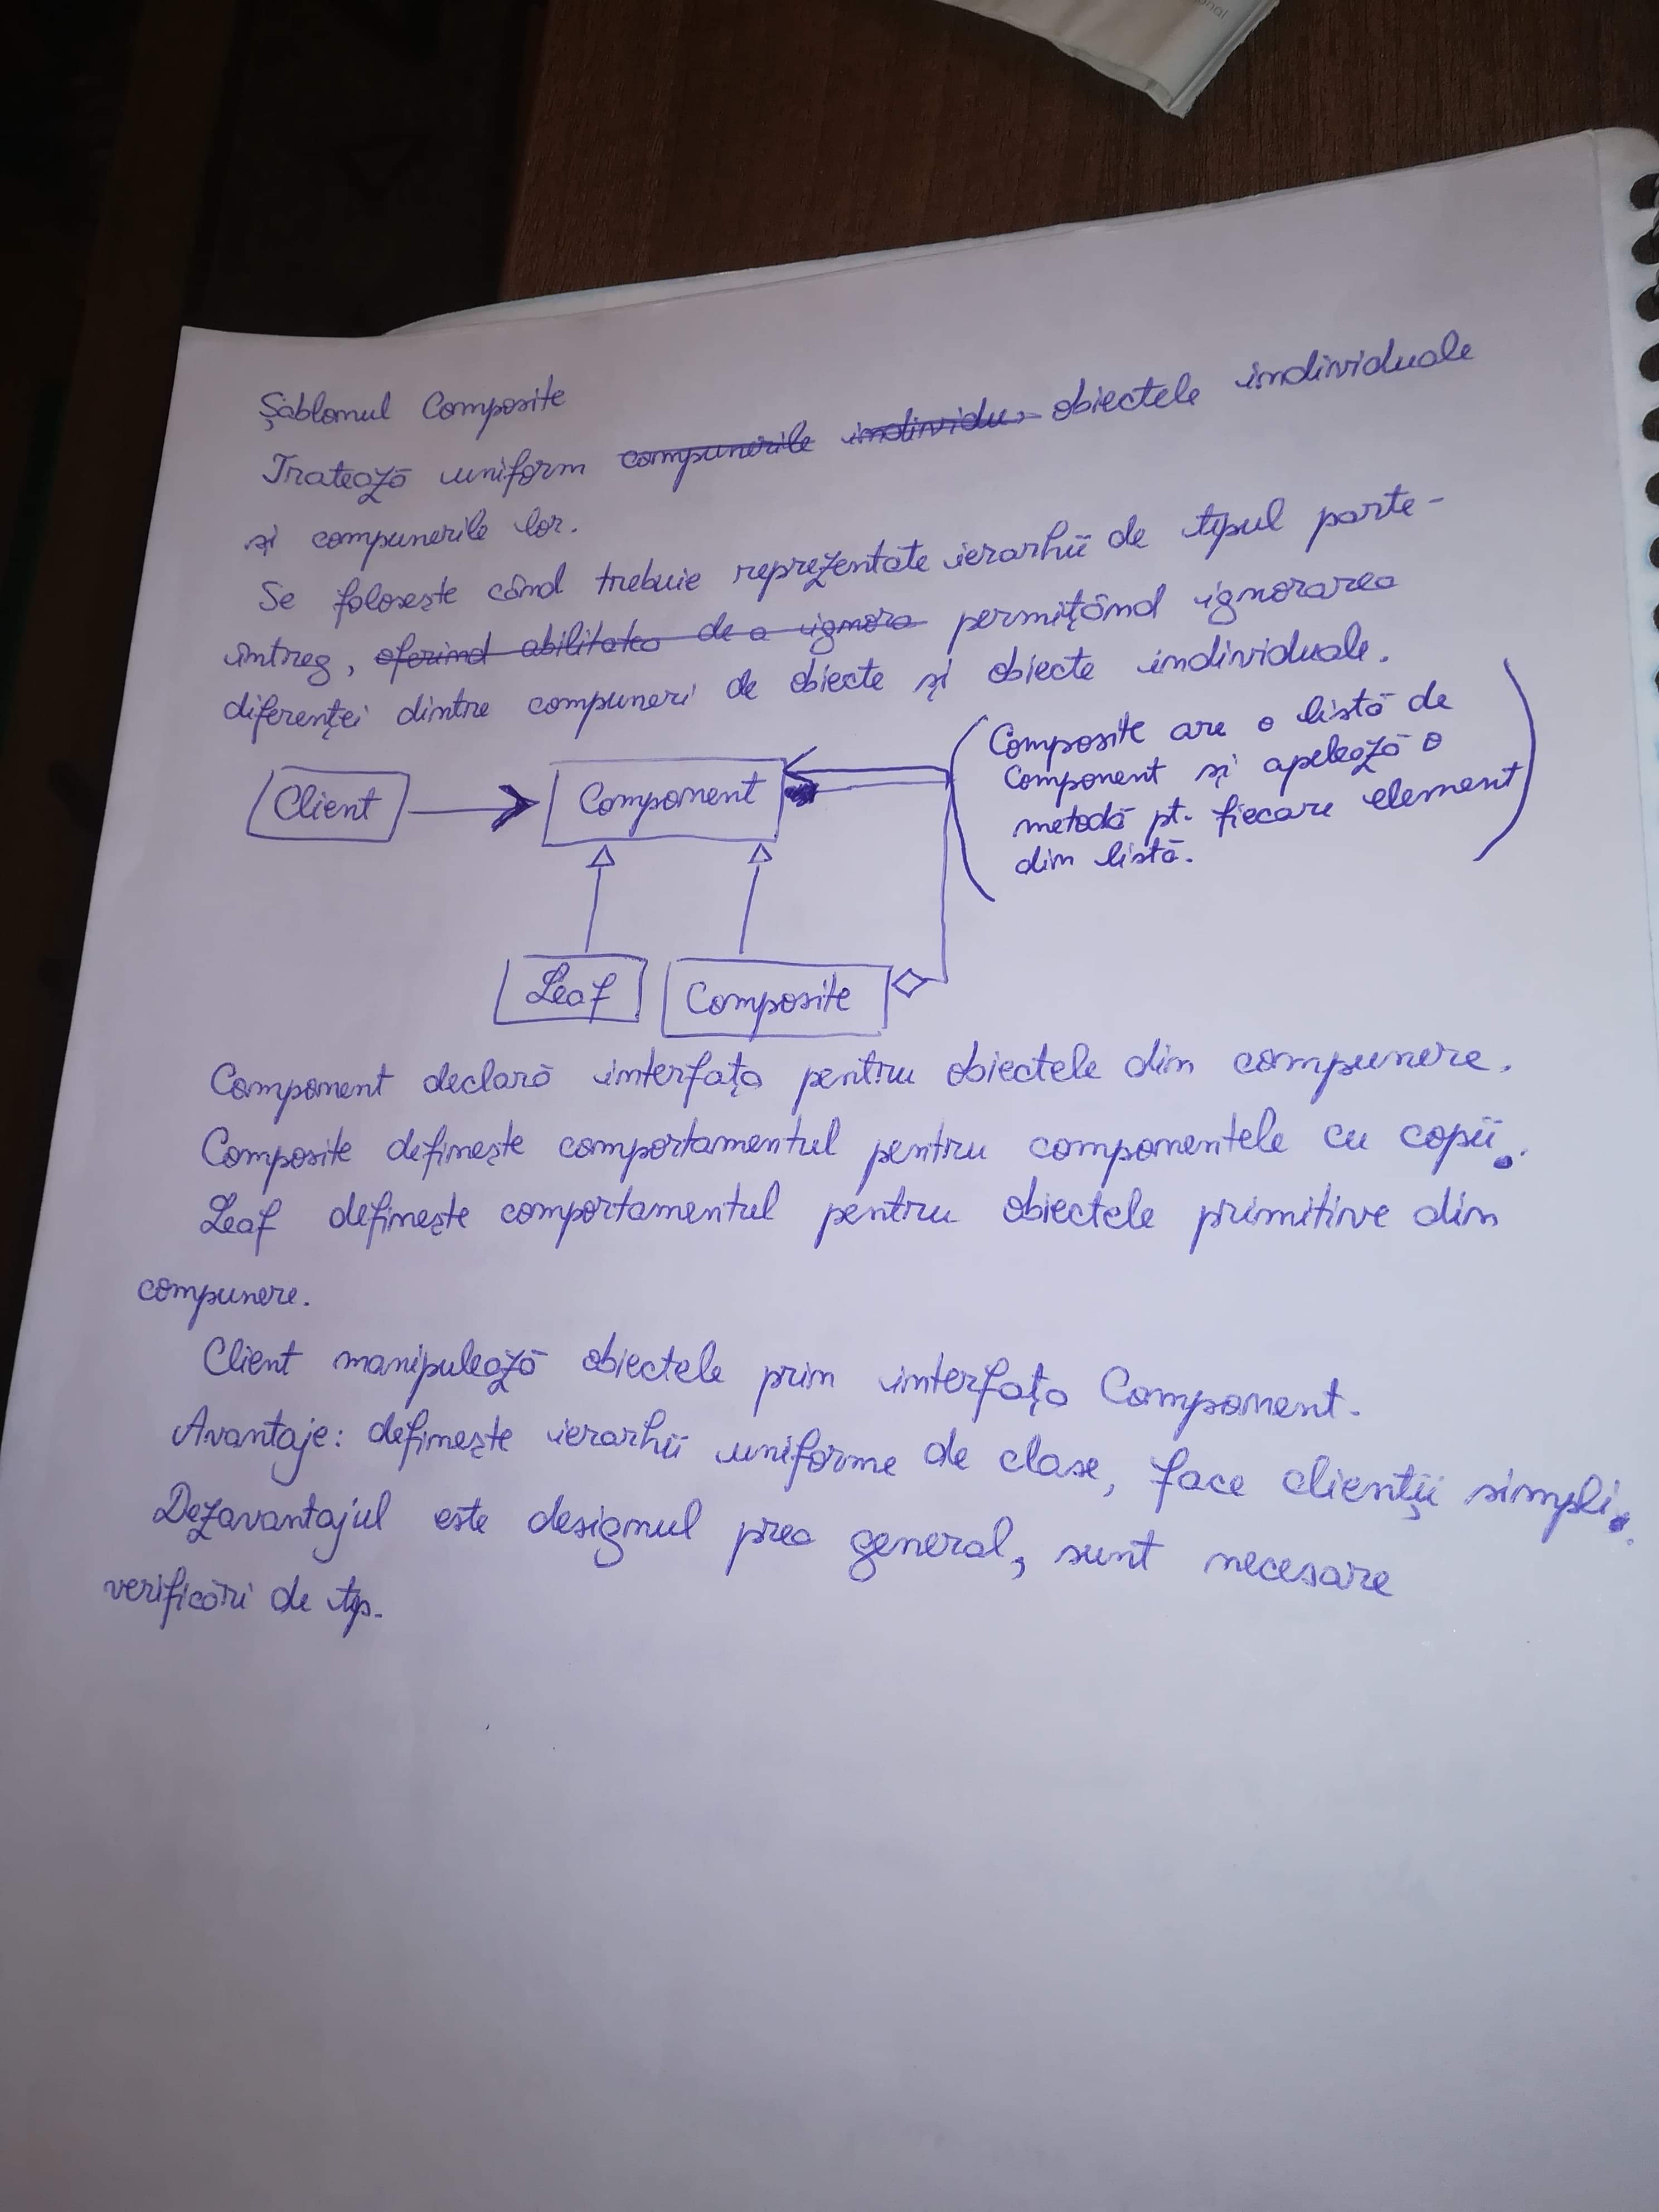 Șablonul Composite
Tratează uniform compunerile individu obiectele individuale
și compunerile lor.
Se folosește când trebuie reprezentate ierarhii de tipul parte-
întreg, oferind abilitatea de a ignora permițând ignorarea
diferenței dintre compuneri de obiecte și obiecte individuale.
(Composite are o listă de
component și apelează o
metodă pt. fiecare element
din listă.)
Client
Component
Leaf
Composite
Component declară interfața pentru obiectele din compunere.
Composite definește comportamentul pentru componentele cu copii.
Leaf definește comportamentul pentru obiectele primitive din
compunere.
Client manipulează obiectele prin interfața Component.
Avantaje: definește ierarhii uniforme de clase, face clienții simpli.
Dezavantajul este designul prea general, sunt necesare
verificări de tip.